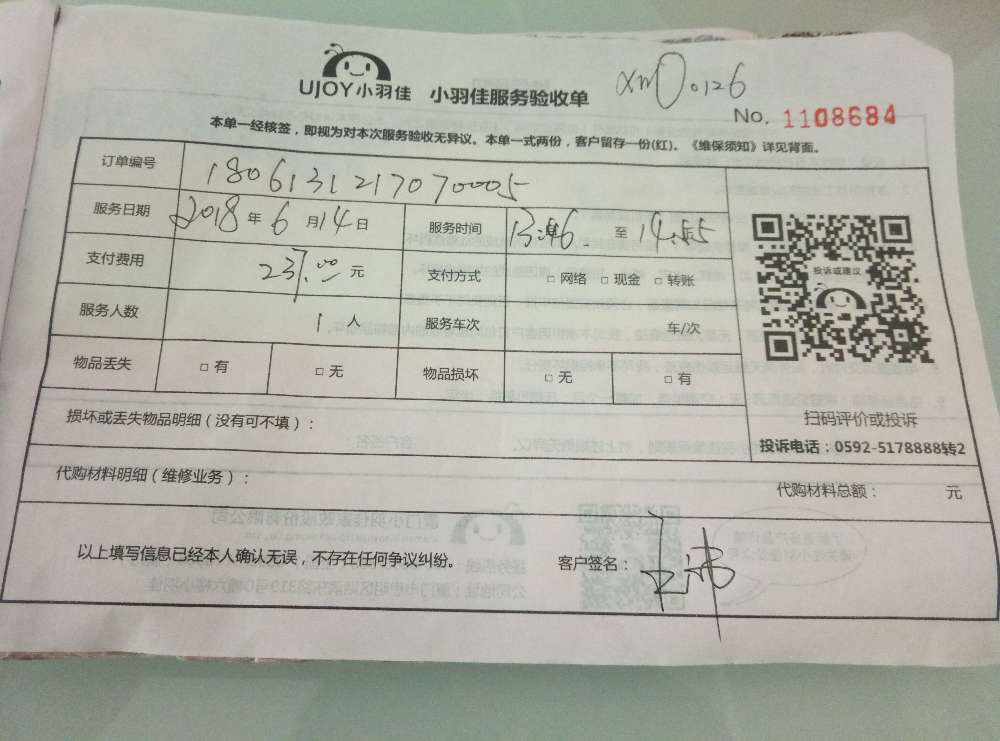 UJOY小羽佳 小羽佳服务验收单 XM00126
No. 1108684
本单一经核签，即视为对本次服务验收无异议。本单一式两份，客户留存一份(红)。《维保须知》详见背面。
订单编号 1806131217070005
服务日期 2018年6月14日 服务时间 至
支付费用 237.00元 支付方式 □ 网络 □ 现金 □ 转账
投诉或建议
服务人数 1人 服务车次 车/次
物品丢失 □ 有 □ 无 物品损坏 □ 无 □ 有
扫码评价或投诉
损坏或丢失物品明细（没有可不填）：
投诉电话：0592-5178888转2
代购材料明细（维修业务）： 代购材料总额： 元
以上填写信息已经本人确认无误，不存在任何争议纠纷。 客户签名：